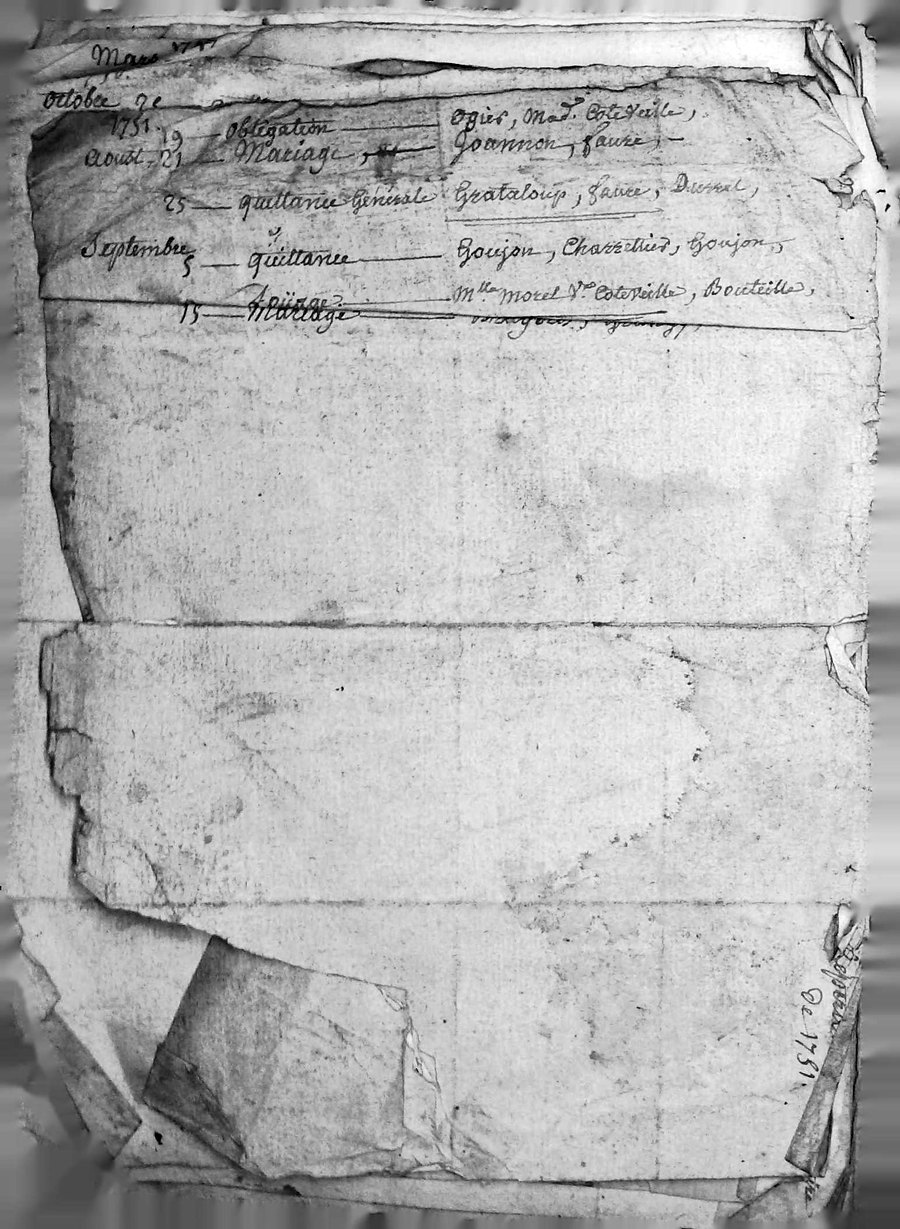 Mars
Octobre 7e
1751. 19 — obligation — Ogier, Mad.e CoteVeille,
Aoust. 21 — Mariage, — Joannon, faure, —
25 — quittance Générale Grataloup, faure,
Septembre 5 — quittance — Goujon, Charretier, Goujon,
Mlle Morel Ve CoteVeille, Bouteille,
15 — Mariage
De 1751.